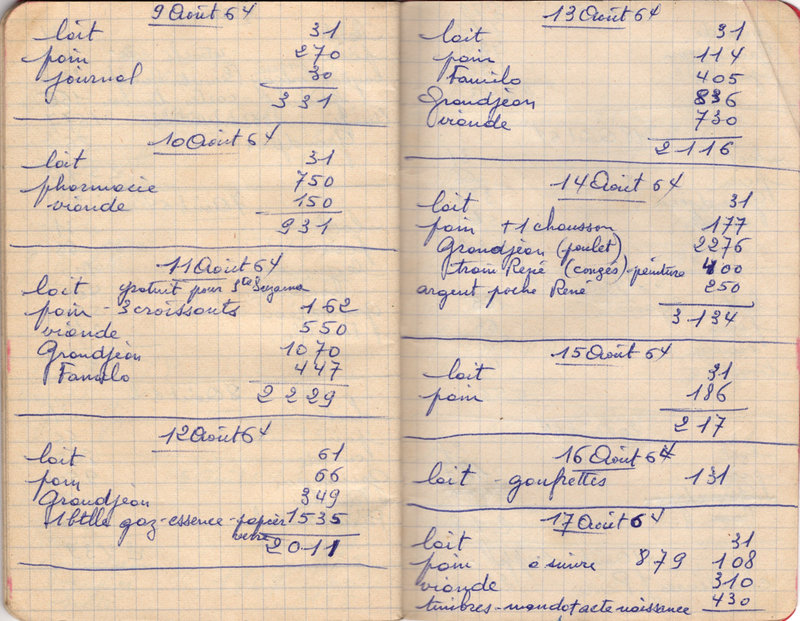 9 Août 64
lait 31
pain 270
journal 30
331
10 Août 64
lait 31
pharmacie 750
viande 150
931
11 Août 64
lait gratuit pour Ste Suzanne
pain - 3 croissants 162
viande 550
Grandjean 1070
Familo 447
2229
12 Août 64
lait 61
pain 66
Grandjean 349
1 btlle gaz - essence - papier 1535
verre
2011
13 Août 64
lait 31
pain 114
Familo 405
Grandjean 836
viande 730
2116
14 Août 64
lait 31
pain + 1 chausson 177
Grandjean (poulet) 2276
train René (congés) - peinture 400
argent poche René 250
3134
15 Août 64
lait 31
pain 186
217
16 Août 64
lait - gaufrettes 131
17 Août 64
lait 31
pain à suivre 879 108
viande 310
timbres - mandat acte naissance 430